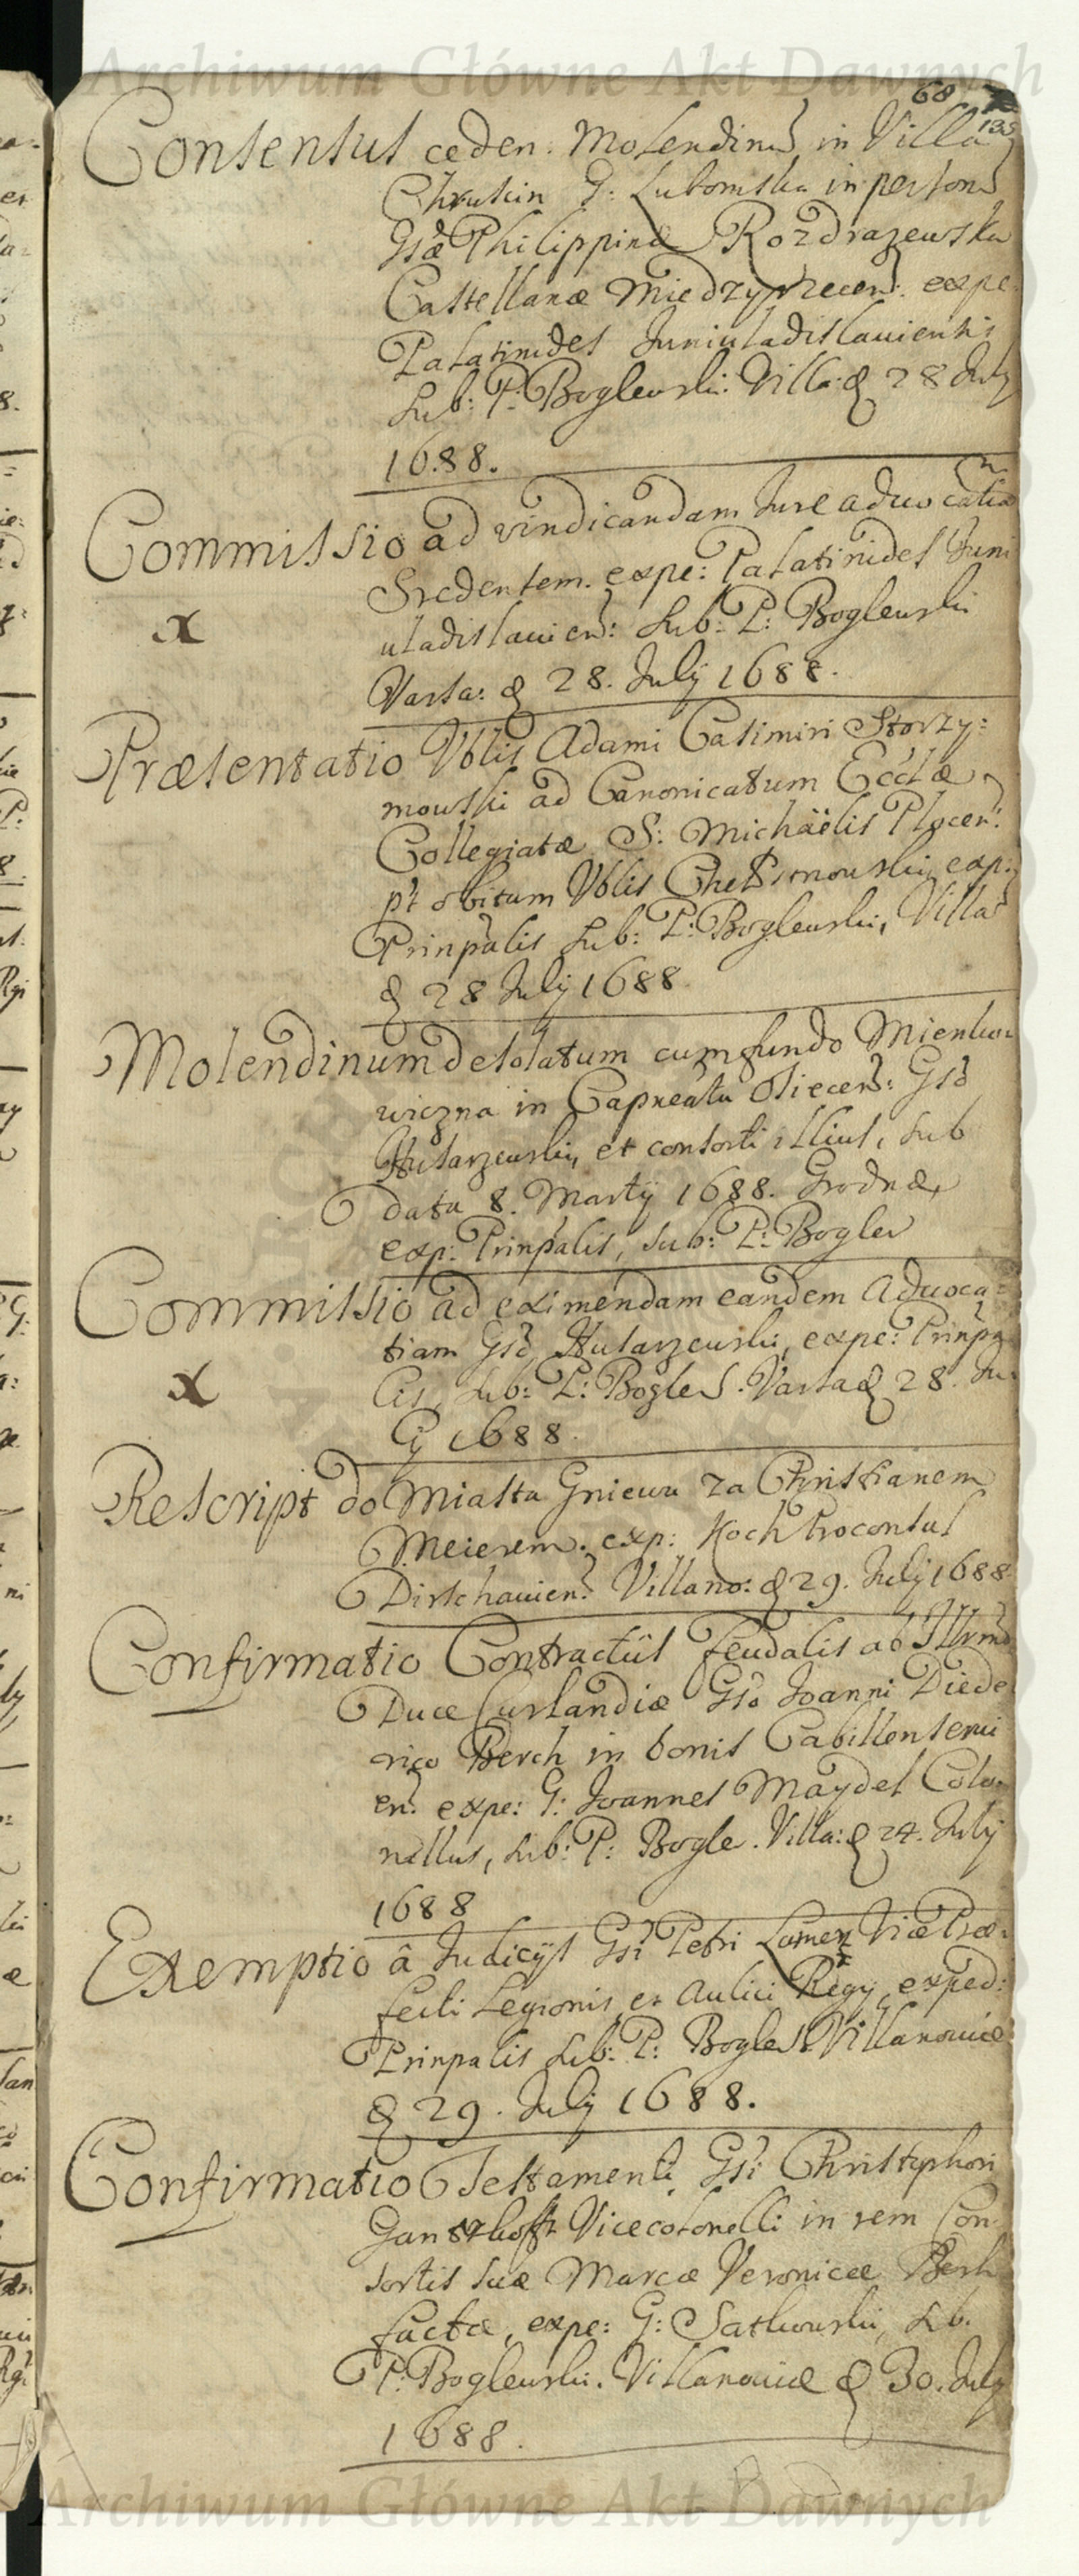 Archiwum Główne Akt Dawnych
68
135
Consensus ceden: Molendinũ in Villa
Chruslin G: Lubomska in personã
Gsæ Philippinæ Rozdrazewska
Castellanæ Miedzyrzecen: expe:
Palatinides Juniuladislauiensis
sub: P: Boglewski Villa: d 28 July
1688.
Commissio ad vindicandam Jure aduocatiã
Sredensem. expe: Palatinides Juni
uladislauien: sub: P: Boglewski
Varsa: d 28. July 1688.
x
Præsentatio Vblis Adami Casimiri Storzy:
mowski ad Canonicatum Ecclæ
Collegiatæ S: Michäelis Plocen:
pt obitum Vblis exp:
Prinpalis sub: P: Boglewski, Villa
d 28 July 1688
Molendinum desolatum cum fundo Mienkw
wiczna in Capneatu Osiecen: Gso
Hutarzewski, et consorti illius, sub
data 8. Martij 1688. Grodnæ,
exp: Prinpalis, sub: P: Bogles
Commissio ad eximendam eandem Aduoca:
tiam Gso Hutarzewski, expe: Prinpa
lis, sub: P: Bogles. Varsa d 28. Ju
ly 1688.
x
Rescript do Miasta Gniewu za Christianem
Meierem. exp: Koch Proconsul
Dirschauien: Villano: d 29. July 1688
Confirmatio Contractus feudalis ab Illrmo
Duce Curlandiæ Gso Joanni Diede
rico Berch in bonis Cabillensemi
en: expe: G: Joannes Maydel Colo:
nellus, sub: P: Bogle. Villa: d 24. July
1688
Exemptio â Judicijs Gsi Petri Lamez Vice Præ:
fecti Legionis et Aulici Regij, exped:
Prinpalis sub: P: Bogles. Villanoviæ
d 29. July 1688.
Confirmatio Testamenti Gsi Christophori
Vicecolonelli in rem Con
sortis suæ Marcæ Veronicæ Berk
factæ, expe: G: Satkowski, sub.
P: Boglewski. Villanoviæ d 30. July
1688.
Archiwum Główne Akt Dawnych